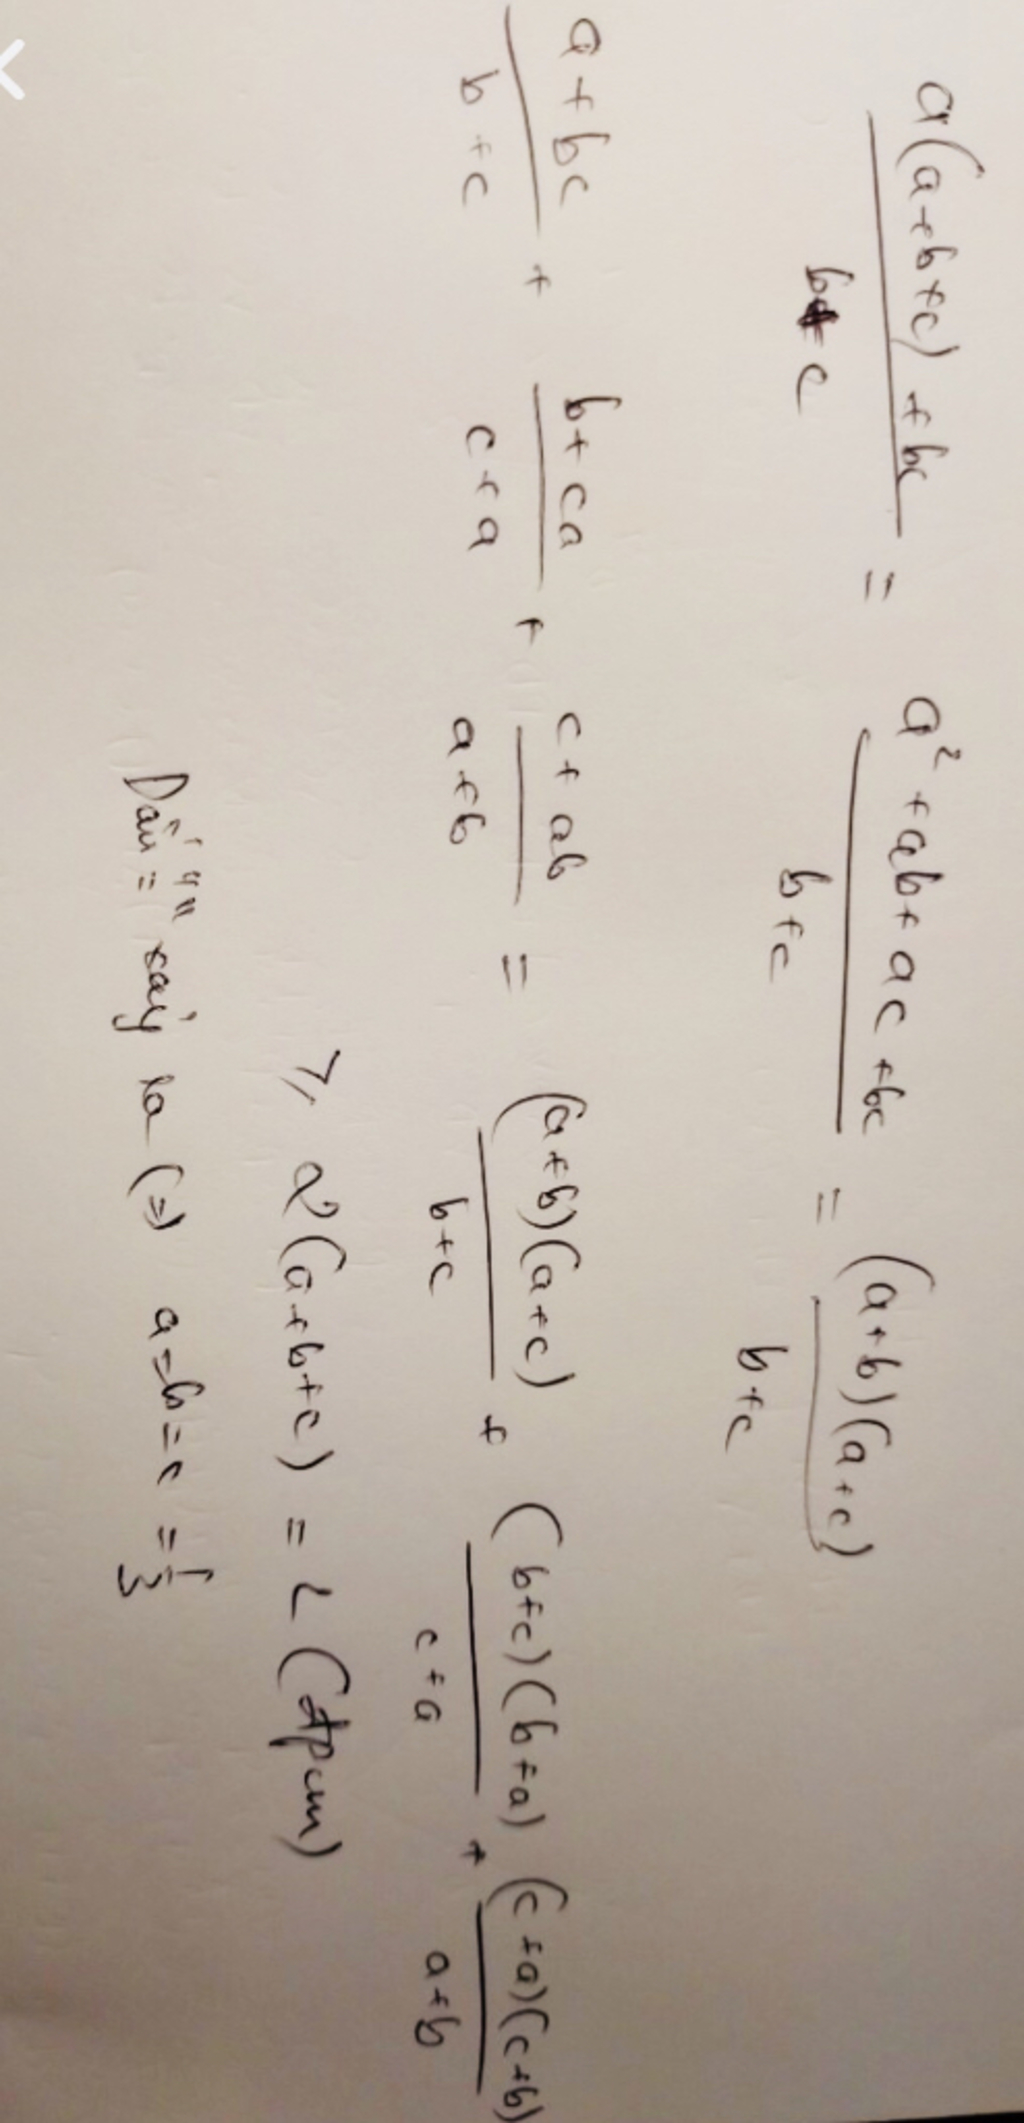 a(a+b+c)+bc / b+c = a²+ab+ac+bc / b+c = (a+b)(a+c) / b+c
a+bc / b+c + b+ca / c+a + c+ab / a+b = (a+b)(a+c) / b+c + (b+c)(b+a) / c+a + (c+a)(c+b) / a+b
⩾ 2(a+b+c) = 2 (đpcm)
Dấu "=" xảy ra (=) a=b=c = 1/3